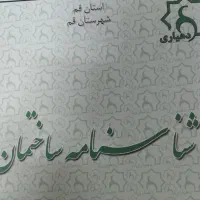 استان قم
شهرستان قم
دهیاری
شناسنامه ساختمان